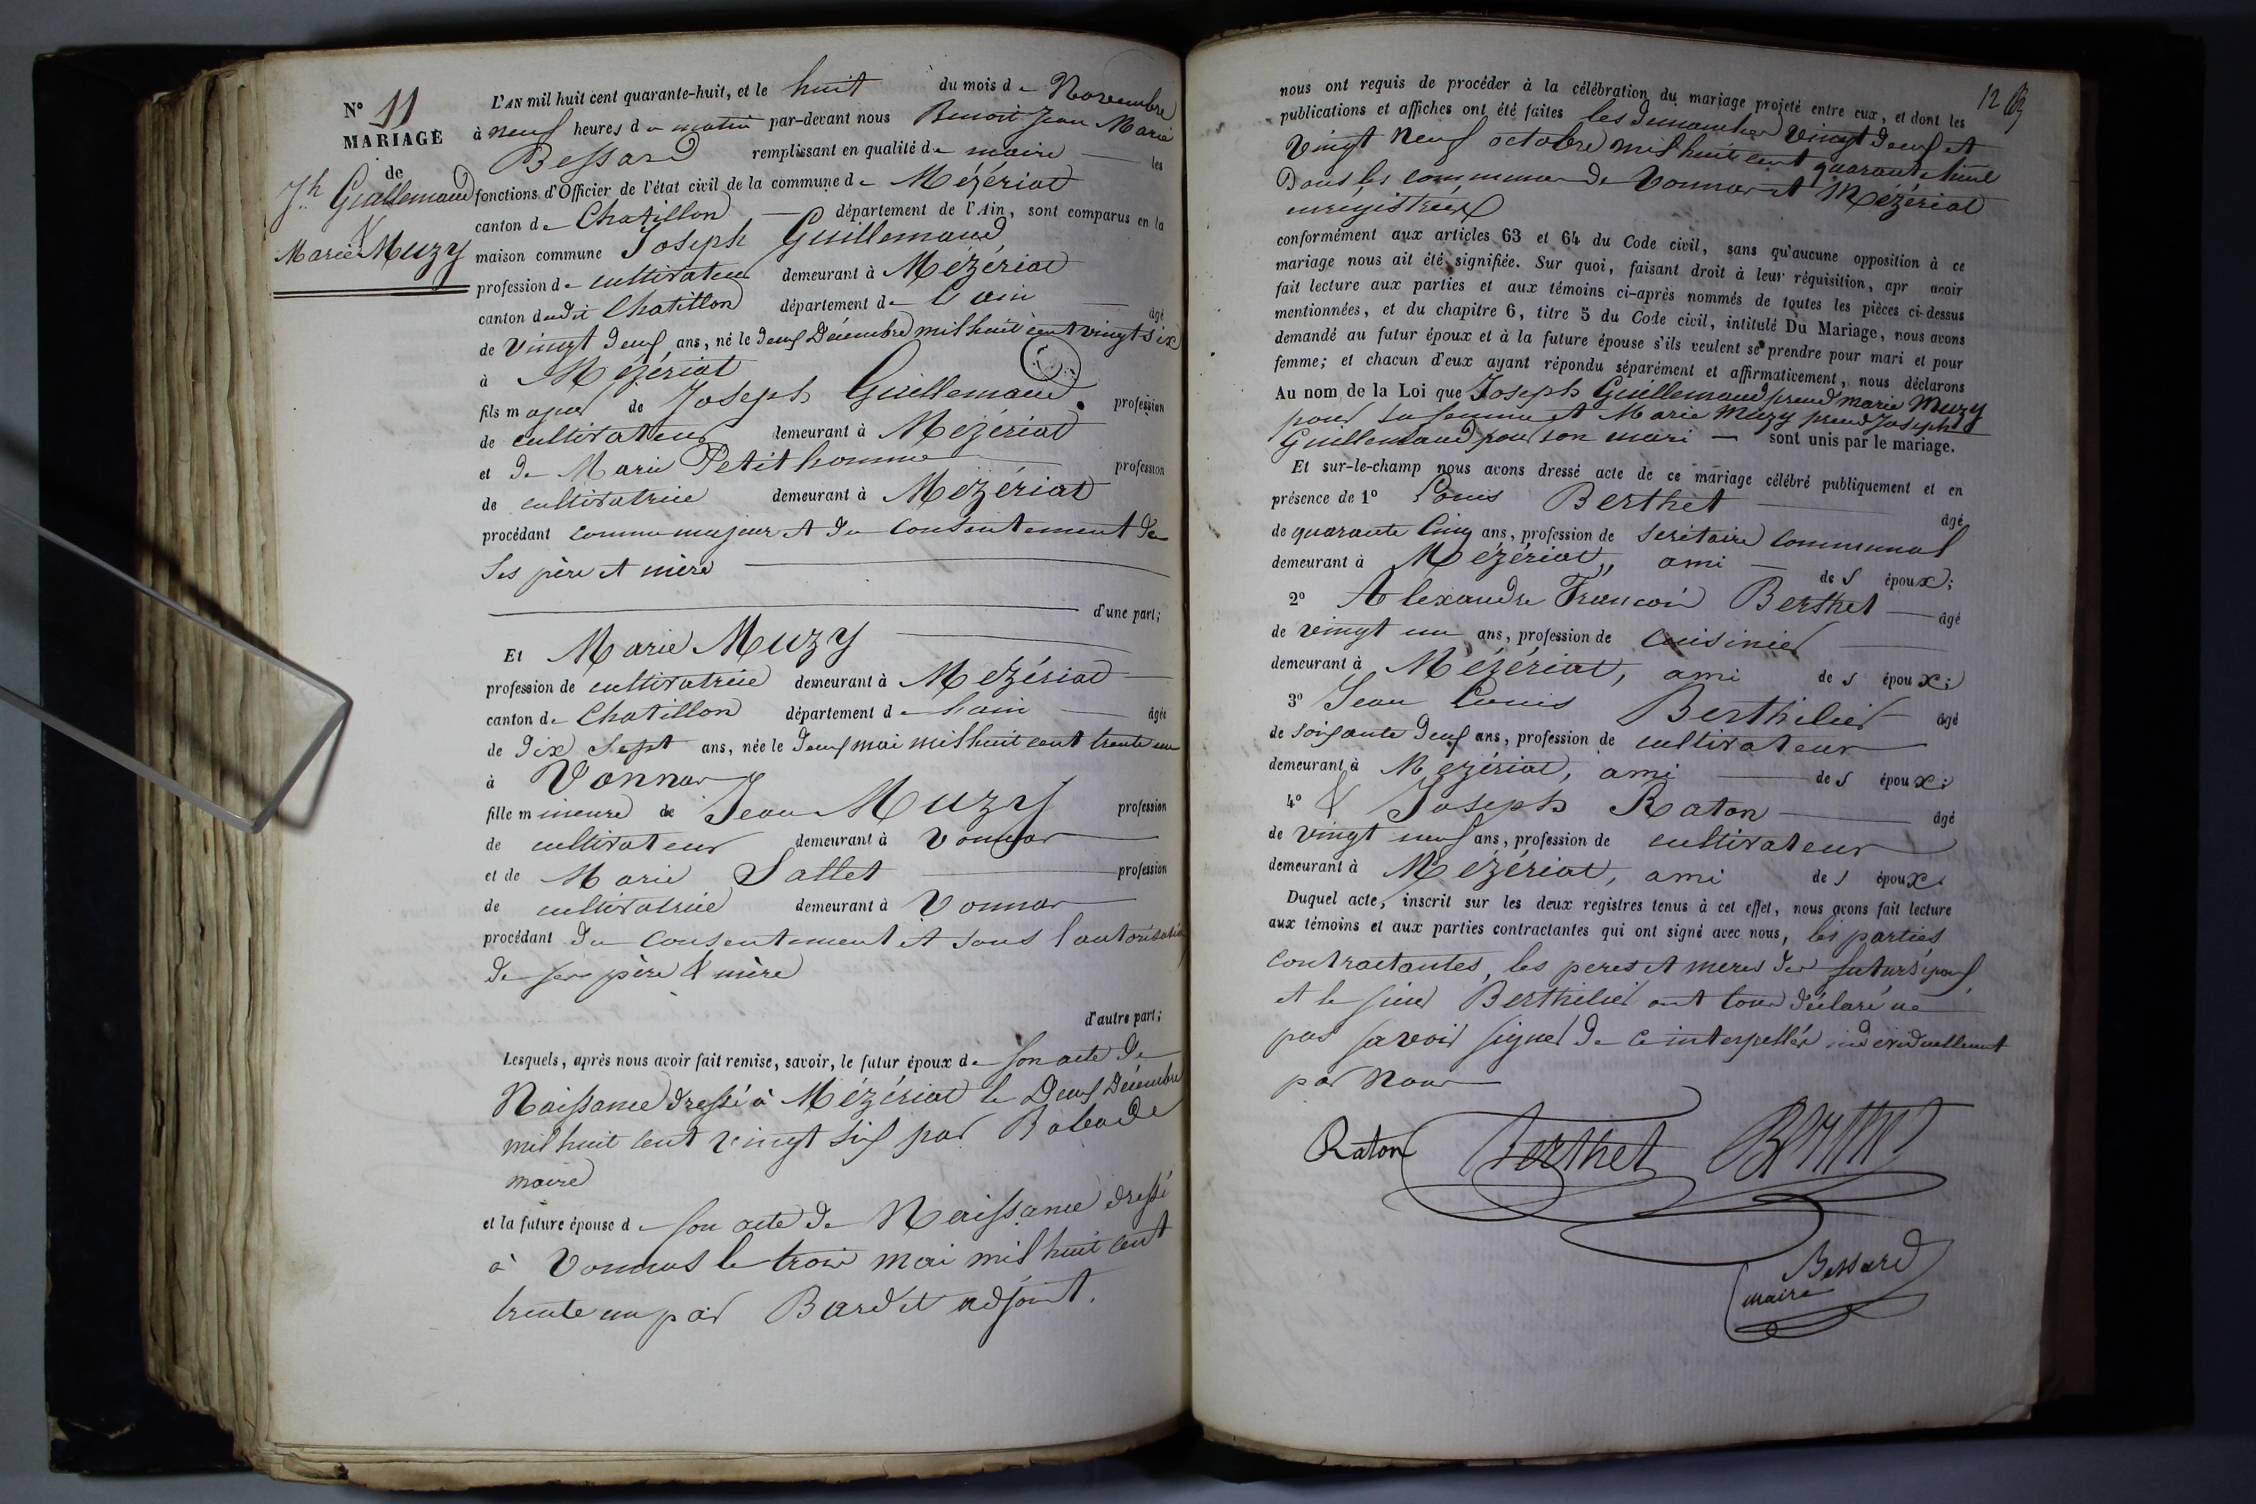 N° 11
MARIAGE
de
Jh Guillemaud
&
Marie Muzy
L'AN mil huit cent quarante-huit, et le huit du mois de Novembre
à neuf heures du matin par-devant nous Benoit Jean Marie
Bessard remplissant en qualité de maire les
fonctions d'Officier de l'état civil de la commune de Mézériat
canton de Chatillon département de l'Ain, sont comparus en la
maison commune Joseph Guillemaud
profession de cultivateur demeurant à Mézériat
canton dudit Chatillon département de L'ain âgé
de vingt deux ans, né le deux Décembre mil huit cent vingt six
à Mézériat
fils majeur de Joseph Guillemaud profession
de cultivateur demeurant à Mézériat
et de Marie Petithomme profession
de cultivatrice demeurant à Mézériat
procédant comme majeur et du consentement de
ses père et mère
d'une part;
Et Marie Muzy
profession de cultivatrice demeurant à Mézériat
canton de Chatillon département de Lain âgée
de dix sept ans, née le deux mai mil huit cent trente un
à Vonnas
fille mineure de Jean Muzy profession
de cultivateur demeurant à Vonnas
et de Marie Sallet profession
de cultivatrice demeurant à Vonnas
procédant du consentement et sous l'autorisation
de ses père & mère
d'autre part;
Lesquels, après nous avoir fait remise, savoir, le futur époux de son acte de
Naissance dressé à Mézériat le Deux Décembre
mil huit cent vingt six par
maire
et la future épouse de son acte de Naissance dressé
à Vonnas le trois mai mil huit cent
trente un par Bardet adjoint.
12
nous ont requis de procéder à la célébration du mariage projeté entre eux, et dont les
publications et affiches ont été faites les dimanches vingt deux et
Vingt Neuf octobre mil huit cent quarante huit
Dans les communes de Vonnas et Mézériat
enrégistrées
conformément aux articles 63 et 64 du Code civil, sans qu'aucune opposition à ce
mariage nous ait été signifiée. Sur quoi, faisant droit à leur réquisition, apr avoir
fait lecture aux parties et aux témoins ci-après nommés de toutes les pièces ci-dessus
mentionnées, et du chapitre 6, titre 5 du Code civil, intitulé Du Mariage, nous avons
demandé au futur époux et à la future épouse s'ils veulent se prendre pour mari et pour
femme; et chacun d'eux ayant répondu séparément et affirmativement, nous déclarons
Au nom de la Loi que Joseph Guillemaud prend marie Muzy
pour sa femme et Marie Muzy prend Joseph
Guillemaud pour son mari sont unis par le mariage.
Et sur-le-champ nous avons dressé acte de ce mariage célébré publiquement et en
présence de 1° Louis Berthet âgé
de quarante cinq ans, profession de secrétaire communal
demeurant à Mézériat, ami des époux;
2° Alexandre François Berthet âgé
de vingt un ans, profession de cuisinier
demeurant à Mézériat, ami des époux;
3° Jean Louis Berthilier âgé
de soixante deux ans, profession de cultivateur
demeurant à Mézériat, ami des époux;
4° & Joseph Raton âgé
de vingt neuf ans, profession de cultivateur
demeurant à Mézériat, ami des époux.
Duquel acte, inscrit sur les deux registres tenus à cet effet, nous avons fait lecture
aux témoins et aux parties contractantes qui ont signé avec nous, les parties
contractantes, les peres et meres des futurs époux,
et le sieur Berthilier ont tous déclaré ne
pas savoir signer de ce interpellés individuellement
par Nous
Raton Berthet Berthet
Bessard
maire